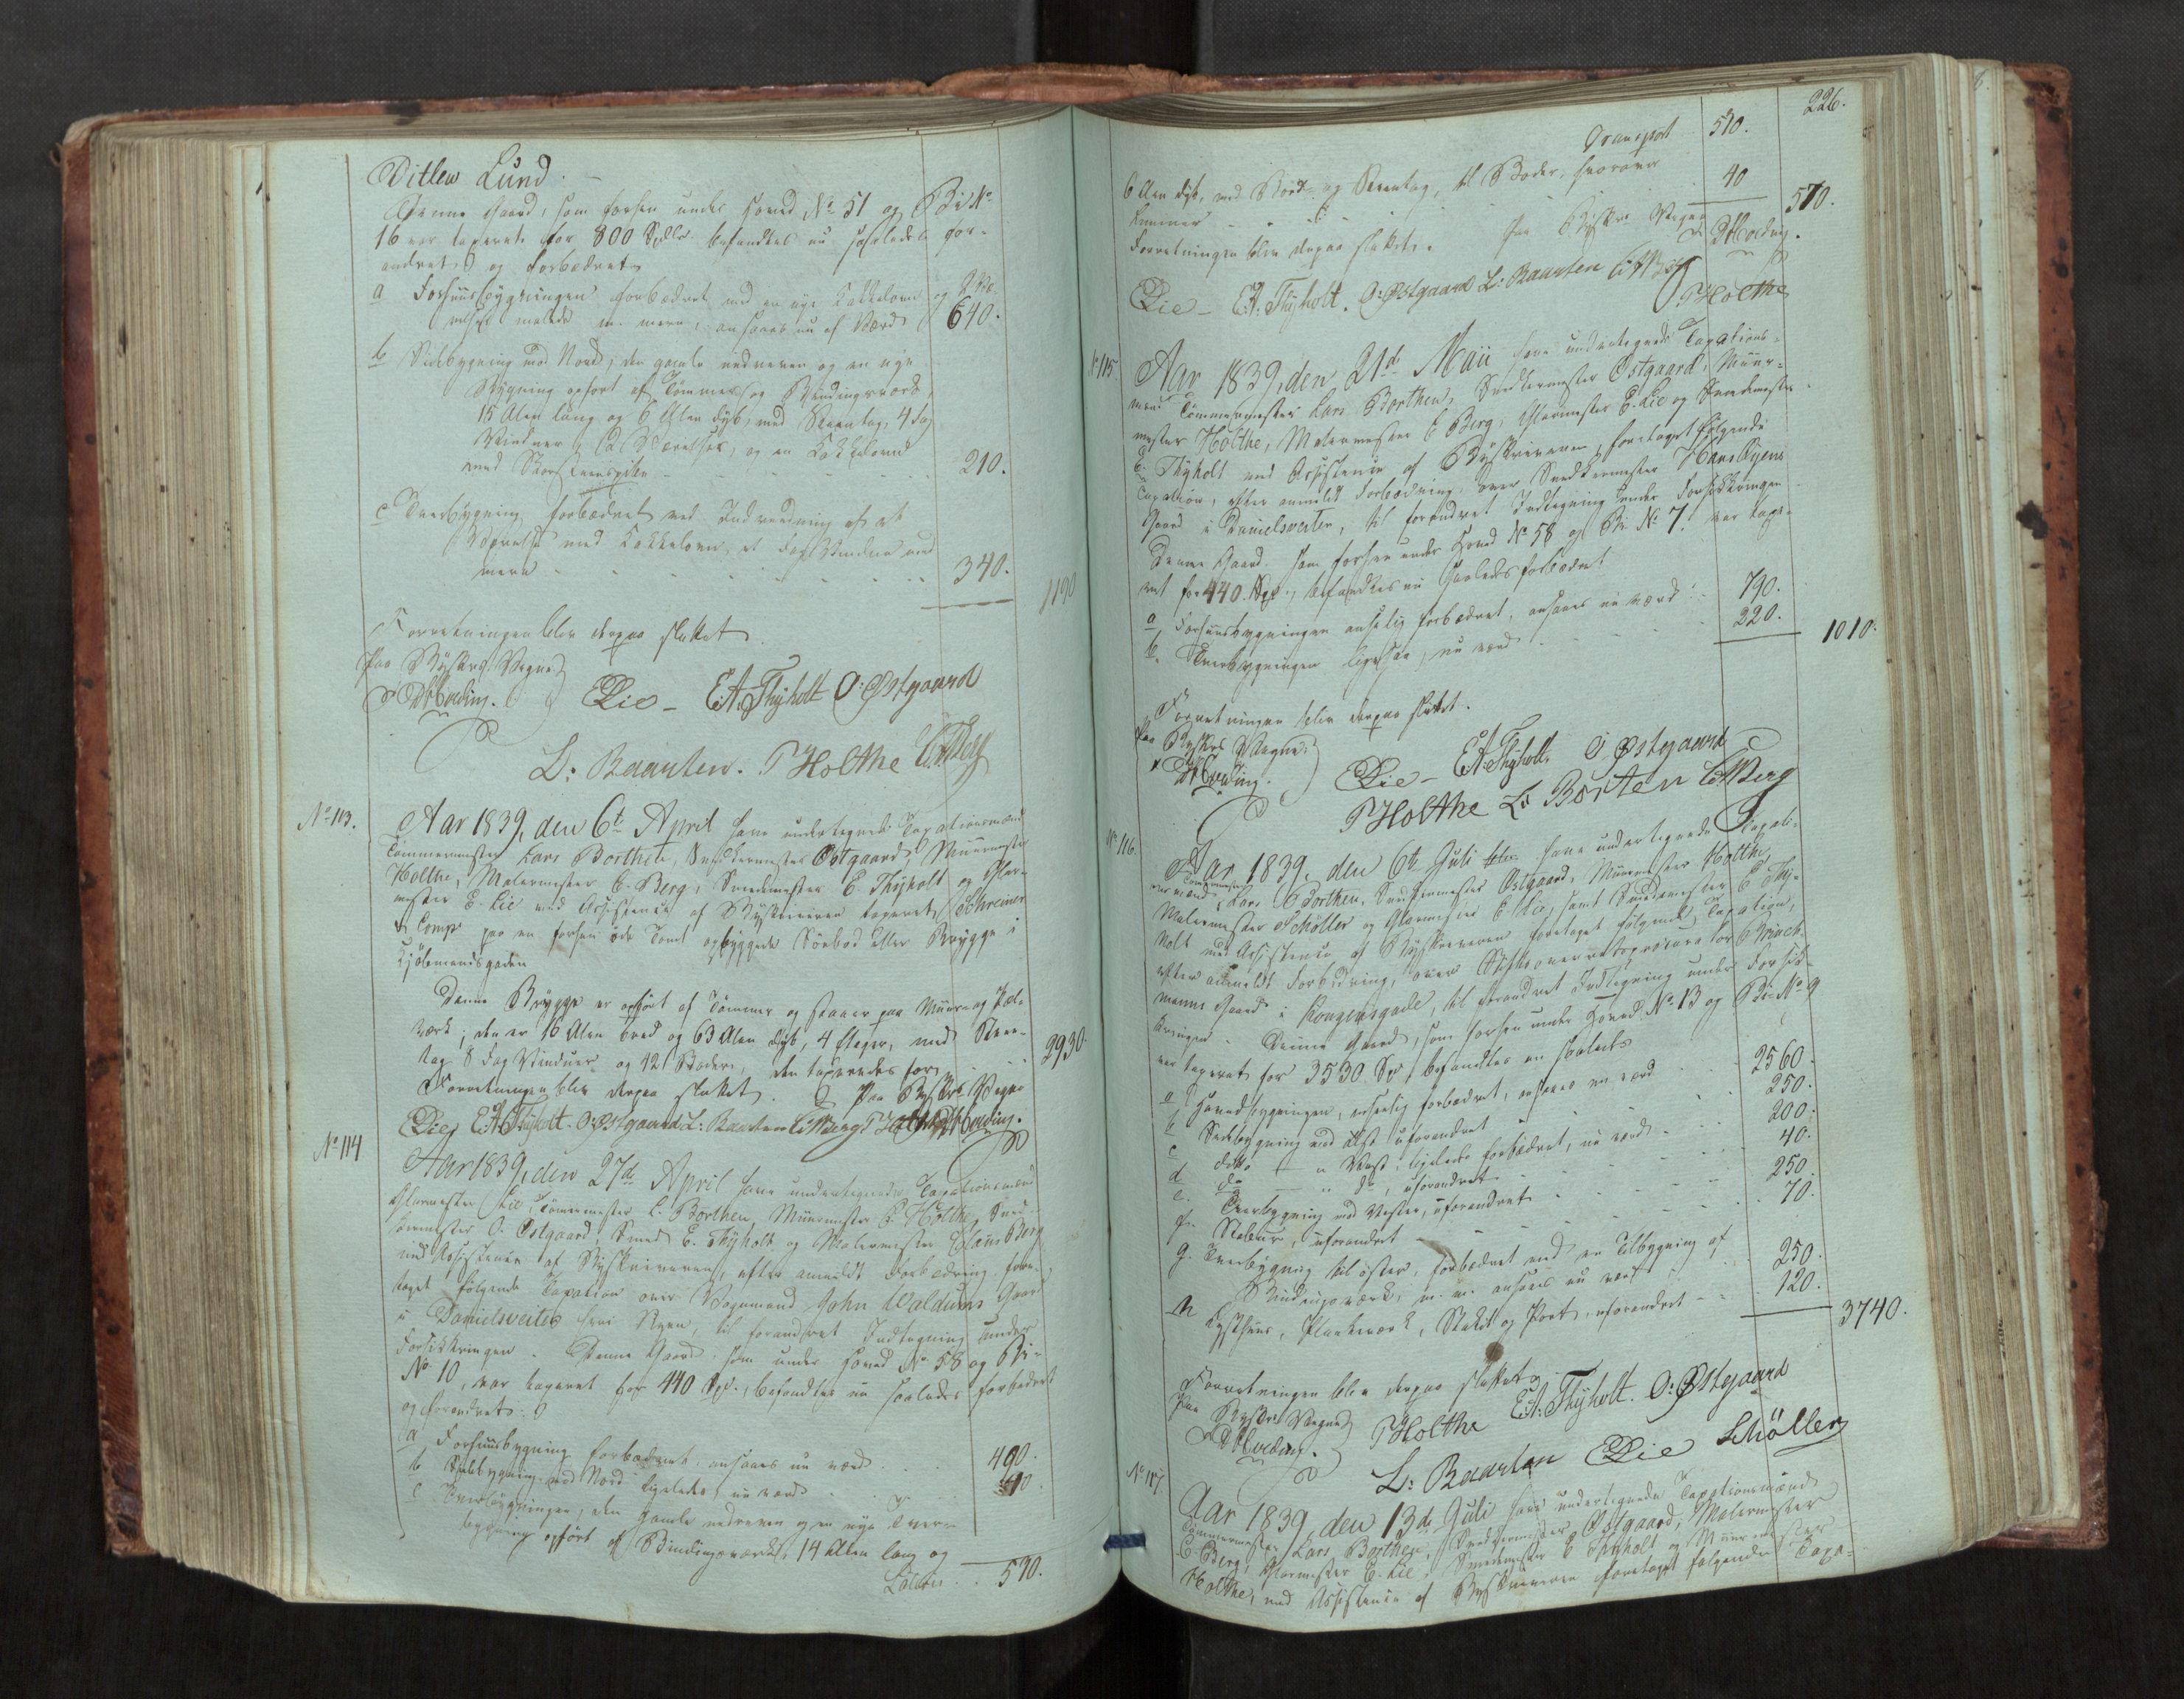 Ditlew Lund.
Denne Gaard, som forhen under Hoved No 51 og Bi No
16 var taxeret for 800 Spdlr. befandtes nu saaledes for-
andret og forbedret
a Forhuusbygningen forbedret med en nye Kakkelovn og
malede m. mere, ansaaes nu af Værd 640.
b Sidebygning mod Nord, den gamle nedreven og en nye
Bygning opført af Tømmer og Bindingsværk,
15 Alen lang og 6 Alen dyb, med Steentag, 4 Fag
Vinduer, 2 Værelser, og en Kakkelovn
med Skorsteenspibe 210.
c Tverbygning forbedret med Indredning af et
Værelse med Kakkelovn, et Fag Vindue med
mere 340.
1190
Forretningen blev derpaa sluttet.
Paa Byskr. Vegne
ELie - E.A. Thyholt O: Østgaard
L: Baarten. T Holthe C. Berg
No 113. Aar 1839, den 6te April have undertegnede Taxationsmænd
Tømmermester Lars Borthen, Snedkermester Østgaard, Muurmester
Holthe, Malermester C. Berg, Smedemester E. Thyholt og Glar-
mester E. Lie med Assistence af Byskriveren taxeret Schreiner
& Comp. paa en forhen øde Tomt opbyggede Søebod eller Brygge i
Kjøbmandsgaden
Denne Brygge er opført af Tømmer og staaer paa Muur- og Pæle-
værk; den er 16 Alen bred og 63 Alen dyb, 4 Etager, med Steen-
tag 8 Fag Vinduer og 42 Boder, den taxeredes for 2930.
Forretningen blev derpaa sluttet. Paa Byskr. Vegne
ELie E.A. Thyholt. O: Østgaard L: Baarten C. Berg T Holthe
No 114 Aar 1839, den 27de April have undertegnede Taxationsmænd
Glarmester Lie, Tømmermester L. Borthen, Muurmester P. Holthe, Sned-
kermester O. Østgaard, Smed E. Thyholt og Malermester Claus Berg
med Assistence af Byskriveren, efter anmeldt Forbedring fore-
taget følgende Taxation over Vognmand John Waldums Gaard
i Danielsveiten heri Byen, til forandret Indtegning under
Forsikkringen. Denne Gaard som under Hoved No 58 og Bi-
No 10, var taxeret for 440 Spd., befandtes nu saaledes forbedret
og forandret:
a Forhuusbygning forbedret ansaaes nu værd 490.
b Sidebygning mod Nord ligeledes, nu værd
c Tverbygningen, den gamle nedreven og en nye Tver-
bygning opført af Bindingsværk, 14 Alen lang og
Lateris 530.
226.
Transport 530.
6 Alen dyb, med Bord- og Steentag, til Boder, hvorover
Kammer 40
570.
Forretningen blev derpaa sluttet. Paa Byskr. Vegne
ELie - E.A. Thyholt. O: Østgaard L: Baarten C. Berg
T Holthe
No 115. Aar 1839, den 21de Maii have undertegnede Taxations-
mænd Tømmermester Lars Borthen, Snedkermester Østgaard, Muur-
mester Holthe, Malermester C Berg, Glarmester E. Lie og Smedemester
E. Thyholt med Assistence af Byskriveren, foretaget følgende
Taxation, efter anmeldt Forbedring, over Snedkermester Hans Øyens
Gaard i Danielsveiten, til forandret Indtegning under Forsikkringen
Denne Gaard som forhen under Hoved No 58 og Bi No 7. var taxe-
ret for 440. Spd., befandtes nu saaledes forbedret
a Forhuusbygningen anseelig forbedret, ansaaes nu værd 790.
b. Tverbygningen ligesaa, nu værd 220.
1010.
Forretningen blev derpaa sluttet.
Paa Byskr. Vegne
ELie - E.A. Thyholt. O Østgaard
T Holthe L: Borten C. Berg
No 116. Aar 1839, den 6te Juli have undertegnede Taxati-
onsmænd Tømmermester Lars Borthen, Snedkermester Østgaard, Muurmester Holthe
Malermester Schøller og Glarmester E Lie, samt Smedemester E Thy-
holt med Assistence af Byskriveren foretaget følgende Taxation,
efter anmeldt Forbedring, over Stiftsoverretsprocurator Brinch-
manns Gaard i Kongensgade, til forandret Indtegning under Forsik-
kringen. Denne Gaard, som forhen under Hoved No 13 og Bi-No 9
var taxeret for 3530 Sp, befandtes nu saaledes
a Hovedbygningen, anseelig forbedret, ansaaes nu værd 2560.
b Sidebygning mod Øst uforandret 250.
c ditto " Vest, ligeledes forbedret, nu værd 200.
d do " do, uforandret 40.
e. Tverbygning mod Vester, uforandret 250.
f. Stabuur, uforandret 70.
g. Tverbygning til Øster, forbedret med en Tilbygning af
Bindingsværk, m. m. ansaaes nu værd 250.
h Lysthuus, Plankeværk, Stakit og Port, uforandret 120.
3740.
Forretningen blev derpaa sluttet
Paa Byskr. Vegne
T Holthe E.A. Thyholt. O: Østgaard
L: Baarten ELie Schøller
No 117 Aar 1839, den 13de Juli have undertegnede Taxationsmænd
Tømmermester Lars Borthen, Snedkermester Østgaard, Malermester
C. Berg, Glarmester E. Lie, Smedemester E Thyholt og Muurmester
Holthe, med Assistence af Byskriveren foretaget følgende Taxa-